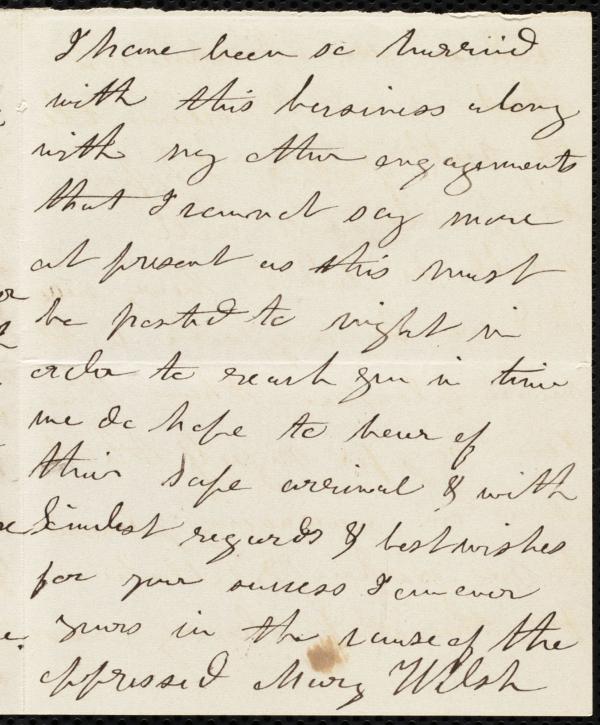 I have been so hurried
with this business along
with my other engagements
that I cannot say more
at present as this must
be posted to night in
order to reach you in time
we do hope to hear of
their safe arrival & with
kindest regards & best wishes
for your success I am ever
yours in the cause of the
oppressed Mary Welsh